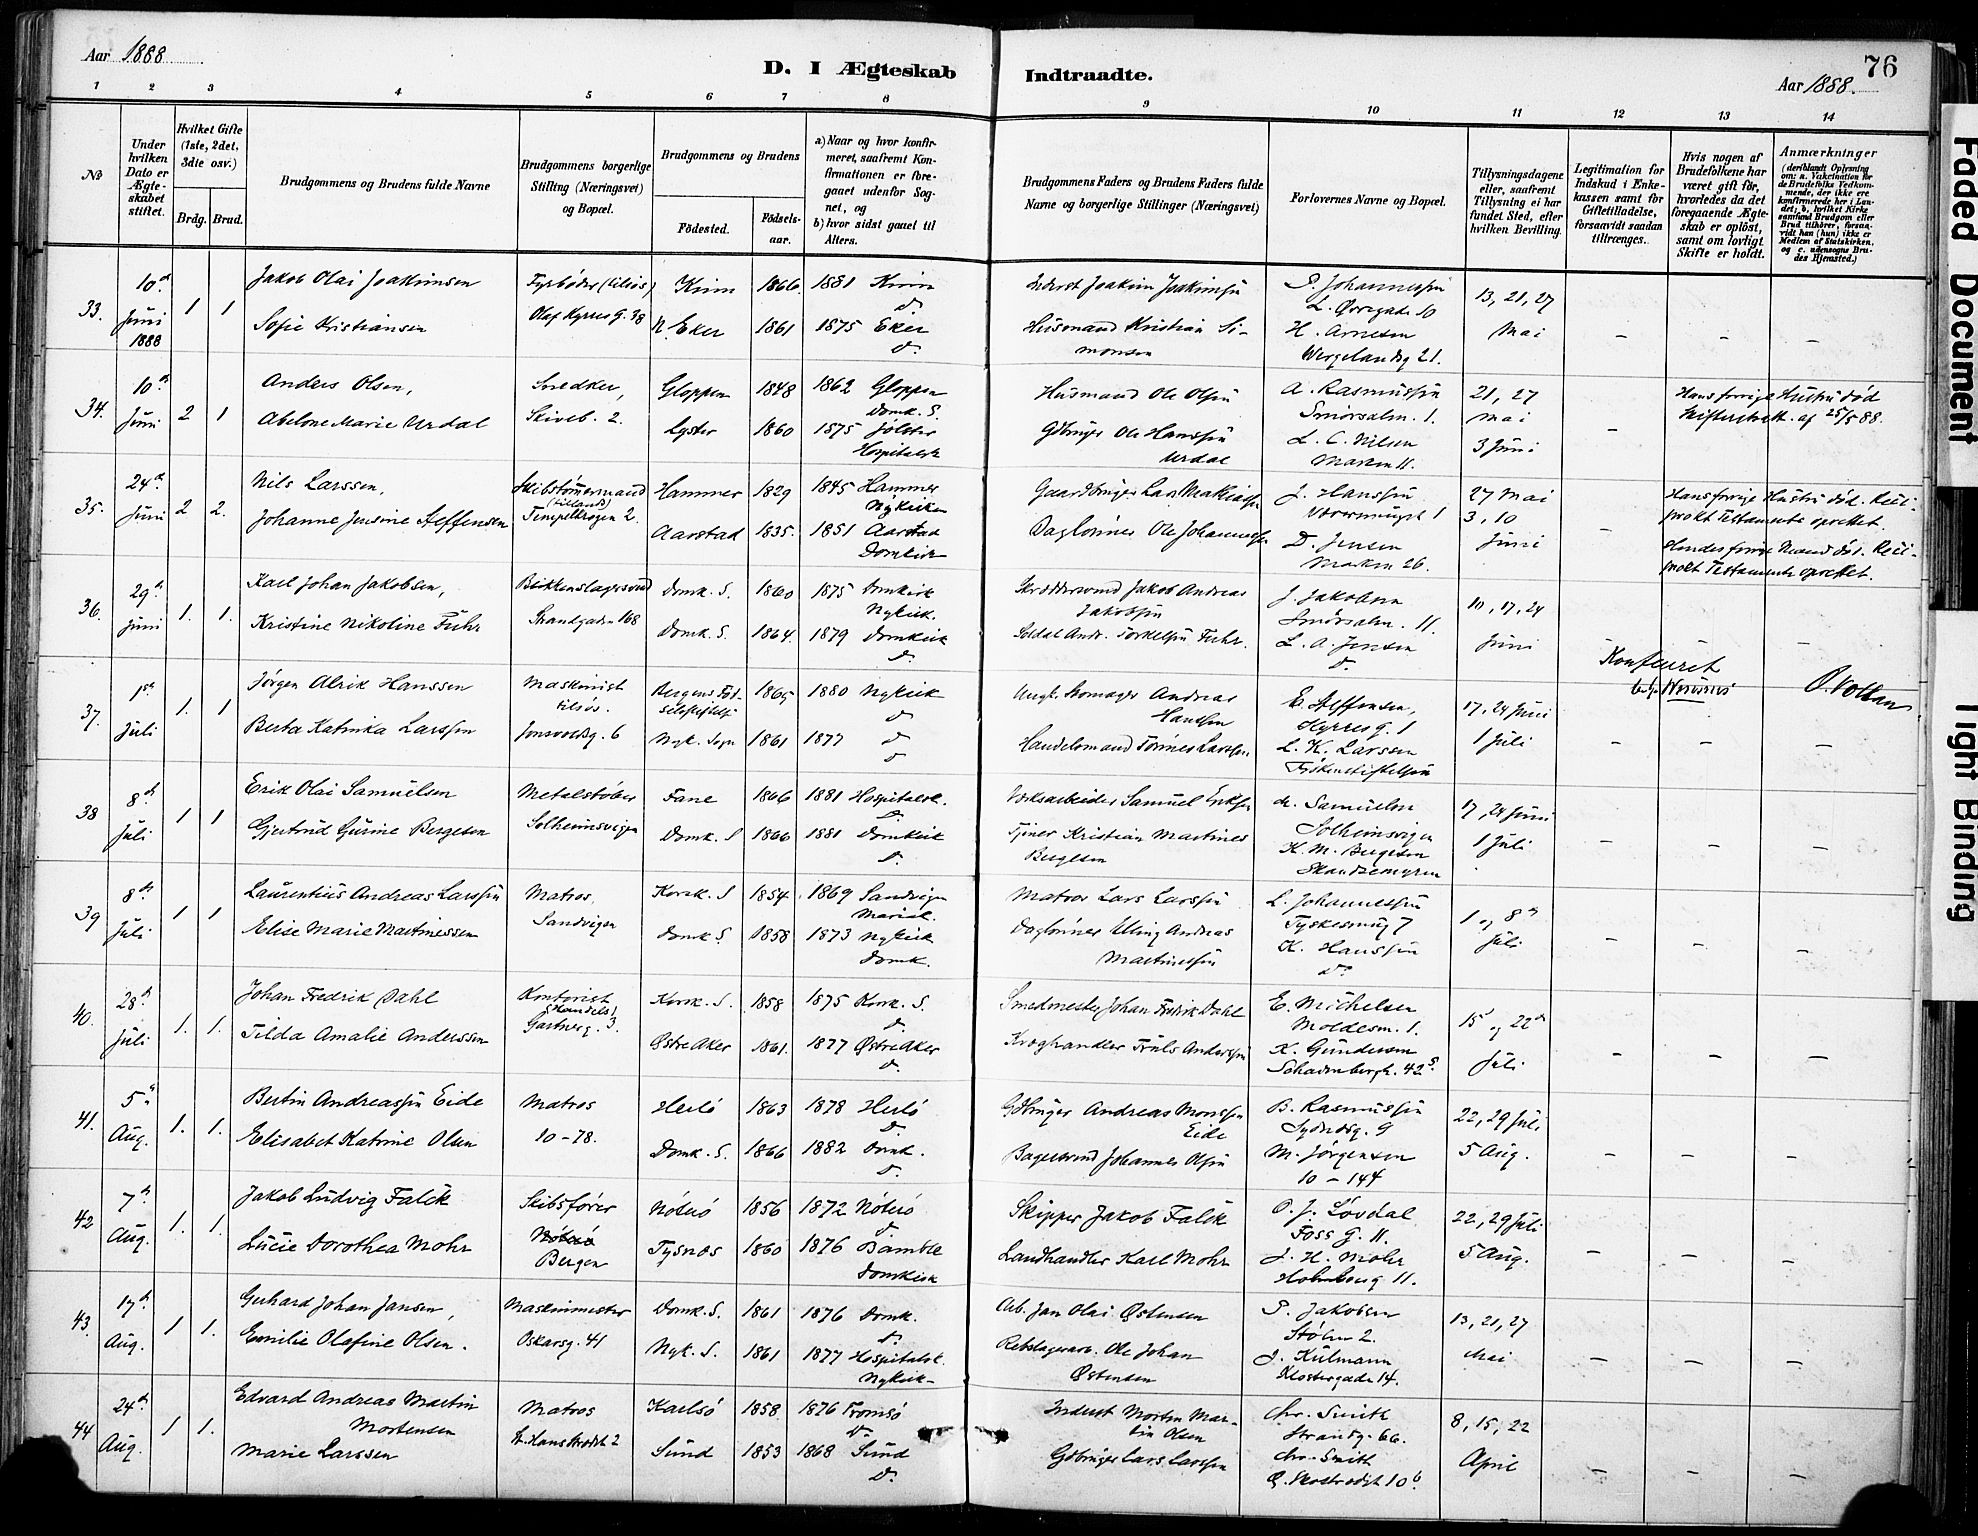 Aar 1888
D. I Ægteskab Indtraadte.
Aar 1888.
76
1 2 3 4 5 6 7 8 9 10 11 12 13 14
No
Under hvilken Dato er Ægteskabet stiftet.
Hvilket Gifte (1ste, 2det, 3die osv.)
Brdg. Brud.
Brudgommens og Brudens fulde Navne
Brudgommens borgerlige Stilling (Næringsvei) og Bopæl.
Brudgommens og Brudens
Fødested. Fødselsaar.
a) Naar og hvor konfirmeret, saafremt Konfirmationen er foregaaet udenfor Sognet, og
b) hvor sidst gaaet til Alters.
Brudgommens Faders og Brudens Faders fulde Navne og borgerlige Stillinger (Næringsvei)
Forlovernes Navne og Bopæl.
Tillysningsdagene eller, saafremt Tillysning ei har fundet Sted, efter hvilken Bevilling.
Legitimation for Indskud i Enkekassen samt for Giftetilladelse, forsaavidt saadan tiltrænges.
Hvis nogen af Brudefolkene har været gift før, hvorledes da det foregaaende Ægteskab er opløst, samt om lovligt Skifte er holdt.
Anmærkninger (deriblandt Oplysning om: a. Vakcination for de Brudefolks Vedkommende, der ikke ere konfirmerede her i Landet; b. hvilket Kirkesamfund Brudgom eller Brud tilhører, forsaavidt han (hun) ikke er Medlem af Statskirken, og c. udensogns Brudes Hjemsted.)
33. 10de Juni 1888 1 1 Jakob Olai Joakimsen Fyrbøder (tilsøs) Kinn 1866 1881 Kinn Inderst Joakim Joakimsen P. Johannessen 13, 21, 27
Sofie Kristiansen Olaf Kyrres G. 38 N. Eker 1861 1875 Eker Husmand Kristian Simonsen L. Øvregade 10 H. Arnesen Mai
Wergelandsg 21.
34. 10de Juni 2 1 Anders Olsen, Snedker, Gloppen 1848 1862 Gloppen Domk. S. Husmand Ole Olsen A. Rasmussen 21, 27 Hans forrige Hustru død
Abelone Marie Urdal Skiveb. 2. Lyster 1860 1875 Jølster Gdbruger Ole Hanssen Urdal Smørsalm. 1. Mai Skifteretsatt. af 25/5 88.
Hospitalsk L. C. Nilsen Marken 11. 3 Juni
35. 24de Juni 2 2. Nils Larssen, Skibstømmermand (tillands) Hammer 1829 1845 Hammer Nykirken Gaardbruger Lars J. Hanssen 27 Mai Hans forrige Hustru død. Reciprokt Testamente oprettet.
Johanne Jensine Steffensen Tempelkrogen 2. Aarstad 1835. 1851 Aarstad Domkirk Daglønner Ole Johannessen D. Jensen 3, 10 Juni Hendes forrige Mand død. Reciprokt Testamente oprettet.
Marken 26.
36. 29de Juni 1. 1. Karl Johan Jakobsen, Blikkenslagersvend Domk. S. 1860 1875 Domkirk Nykirk. Skræddersvend Jakob Andreas Jakobsen J. Jakobsen 10, 17, 24
Kristine Nikoline Fuhr Strandgaden 168 Domk. S. 1864. 1879 Domkirk Soldat Andr. Torkelsen Fuhr. Smørsalm. 11. L. A. Jensen Juni
Konfereret O. Vollan
37. 1ste Juli 1. 1 Jørgen Alrik Hanssen Maskinist tilsøs. Bergens Fødselsstiftelse 1865 1880 Nykirk Andreas Hanssen E. Steffensen, 17, 24 Juni
Berta Katinka Larssen Jonsvoldsg. 6 Nyk. Sogn 1861 1877 Handelsmand Tønnes Larssen Kyrresg. 1 L. K. Larssen 1 Juli
38 8de Juli 1 1 Erik Olai Samuelsen Metalstøber Fane 1866 1881 Hospitalsk. Værksarbeider Samuel Eriksen Samuelsen 17, 24 Juni
Gjertrud Gurine Bergesen Solheimsvigen Domk. S 1866 1881 Domkirk Tjener Kristian Martines Bergesen Solheimsvigen K. M. Bergesen 1 Juli
39 8de Juli 1 1 Laurentius Andreas Larssen Matros, Korsk. S 1854 1869 Sandvigen Mariek. Matros Lars Larssen L. Johannessen 1 og 8de
Elise Marie Martinessen Sandvigen Domk S. 1858 1873 Nykirk Domk. Daglønner Elling Andreas Martinessen Tyskesmug 7 K. Hanssen Juli
40. 28de Juli 1. 1. Johan Fredrik Dahl Kontorist (Handels) Korsk. S. 1858 1875 Korsk. S. Smedmester Johan Fredrik Dahl E. Michelsen 15 og 22de
Tilda Amalie Anderssen Gartnerg. 3. Østre Aker 1861. 1877 Østre Aker Kroghandler Truls Anderssen Moldesm. 1. K. Gundersen Juli
41. 5te Aug. 1. 1. Bertin Andreassen Eide Matros Herlø 1863 1878 Herlø Gdbruger Andreas Monssen Eide B. Rasmussen 22, 29 Juli
Elisabet Katrine Olsen 10-78. Domk. S. 1866 1882 Domk. Bagersvend Johannes Olsen Sydnæsg. 9 M. Jørgensen 10-144 5 Aug.
42 7de Aug. 1. 1. Jakob Ludvig Falck Skibsfører Nøterø 1856 1872 Nøterø Skipper Jakob Falck O. J. Løvdal 22, 29 Juli
Lucie Dorothea Mohr Nøterø Bergen Tysnæs 1860 1876 Bamble Domkirk Landhandler Karl Mohr Foss G. 11. J. H. Mohr Holmboug 11. 5 Aug.
43. 17de Aug. 1 1. Gerhard Johan Jansen, Maskinmester Domk. S. 1861 1876 Domk. Arb. Jan Olai Østensen P. Jakobsen 13, 21, 27
Emilie Olafine Olsen. Oskarsg. 41 Nyk. S. 1861 1877 Hospitalsk. Nykirk Rebslagerarb. Ole Johan Østensen Stølen 2. J. Kulmann Klostergade 14. Mai
44 24de Aug. 1 1. Edvard Andreas Martin Mortensen Matros Karlsø 1858 1876 Tromsø Inderst Morten Martin Olsen Chr. Smith 8, 15, 22
Marie Larssen St. Hansstrædet 2 Sund 1853 1868 Sund Gdbruger Lars Larssen Strandg. 66. Chr. Smith April
Faded Document
Tight Binding